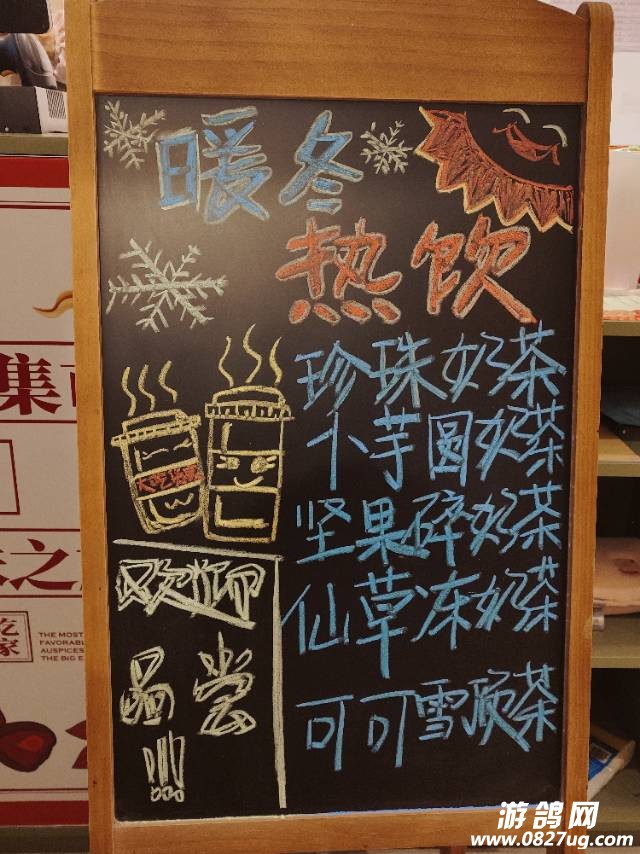 暖冬
热饮
珍珠奶茶
小芋圆奶茶
坚果碎奶茶
仙草冻奶茶
可可雪顶茶
大吃
欢迎
品尝
!!!
集
之
吃
家
THE MOST
FAVORABLE
AUSPICES
THE BIG E
游鸽网
www.0827ug.com